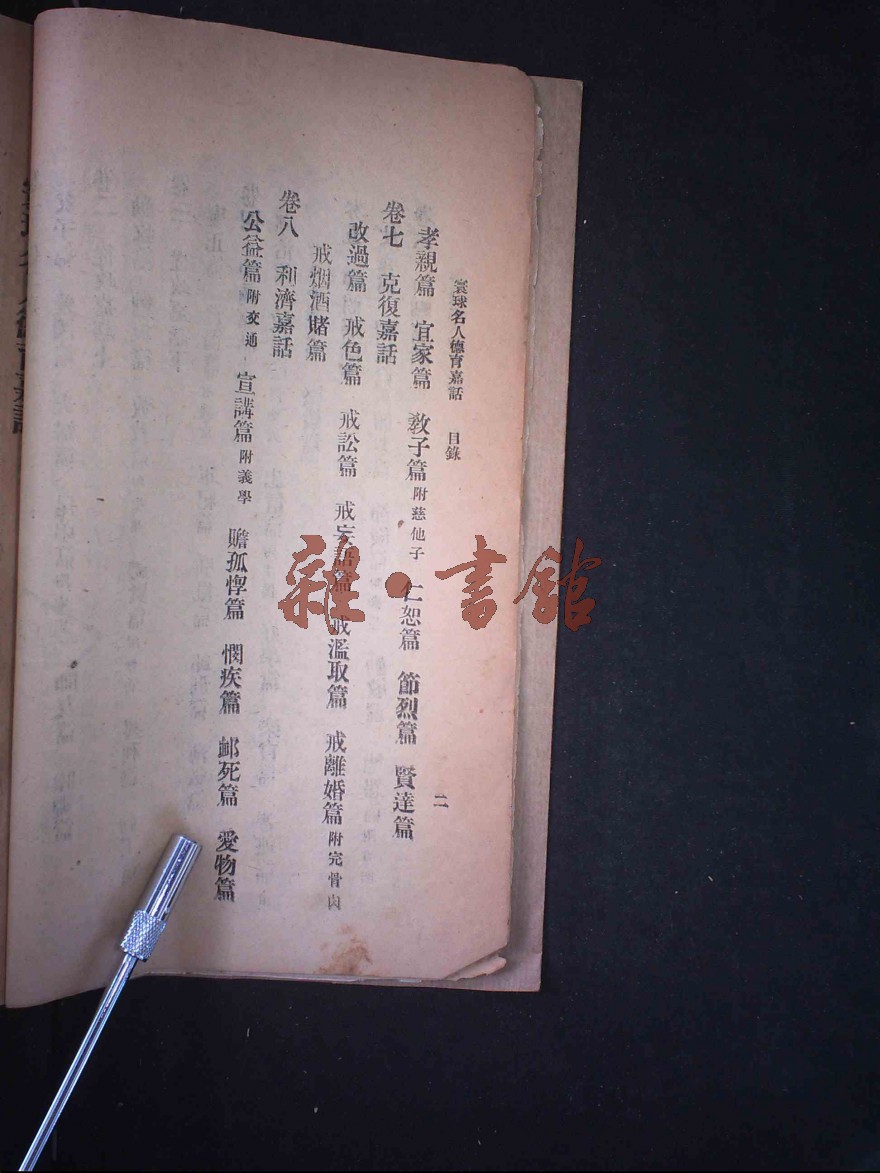 寰球名人德育嘉話 目錄 二
孝親篇 宜家篇 敎子篇 附慈他子 仁恕篇 節烈篇 賢達篇
卷七 克復嘉話
改過篇 戒色篇 戒訟篇 戒妄語篇 戒濫取篇 戒離婚篇 附完骨肉
戒烟酒賭篇
卷八 利濟嘉話
公益篇 附交通 宣講篇 附義學 贍孤惸篇 憫疾篇 卹死篇 愛物篇
雜·書館